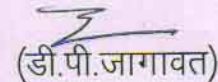 (डी.पी.जागावत)